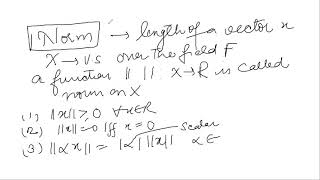 Norm → length of a vector x
X → VS over the field F
a function || || X → R is called
norm on X
(1) ||x|| ≥ 0 ∀x∈R
(2) ||x|| = 0 Iff x = 0
scalar
(3) ||αx|| = |α| ||x|| α∈